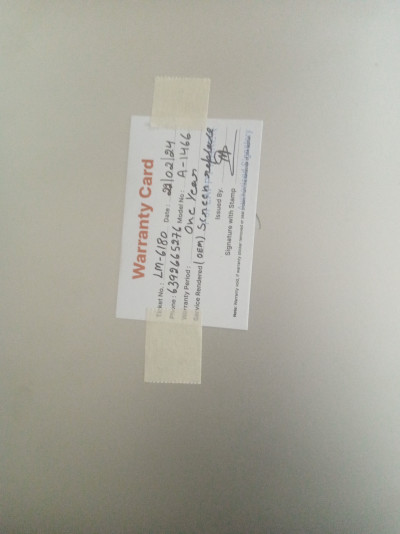 Warranty Card
Ticket No.: LM-6180 Date: 22/02/24
Phone: 6392665276 Model No.: A-1466
Warranty Period: One Year
Service Rendered (OEM) Screen replace
Issued By:
Signature with Stamp
Note: Warranty void, if warranty sticker